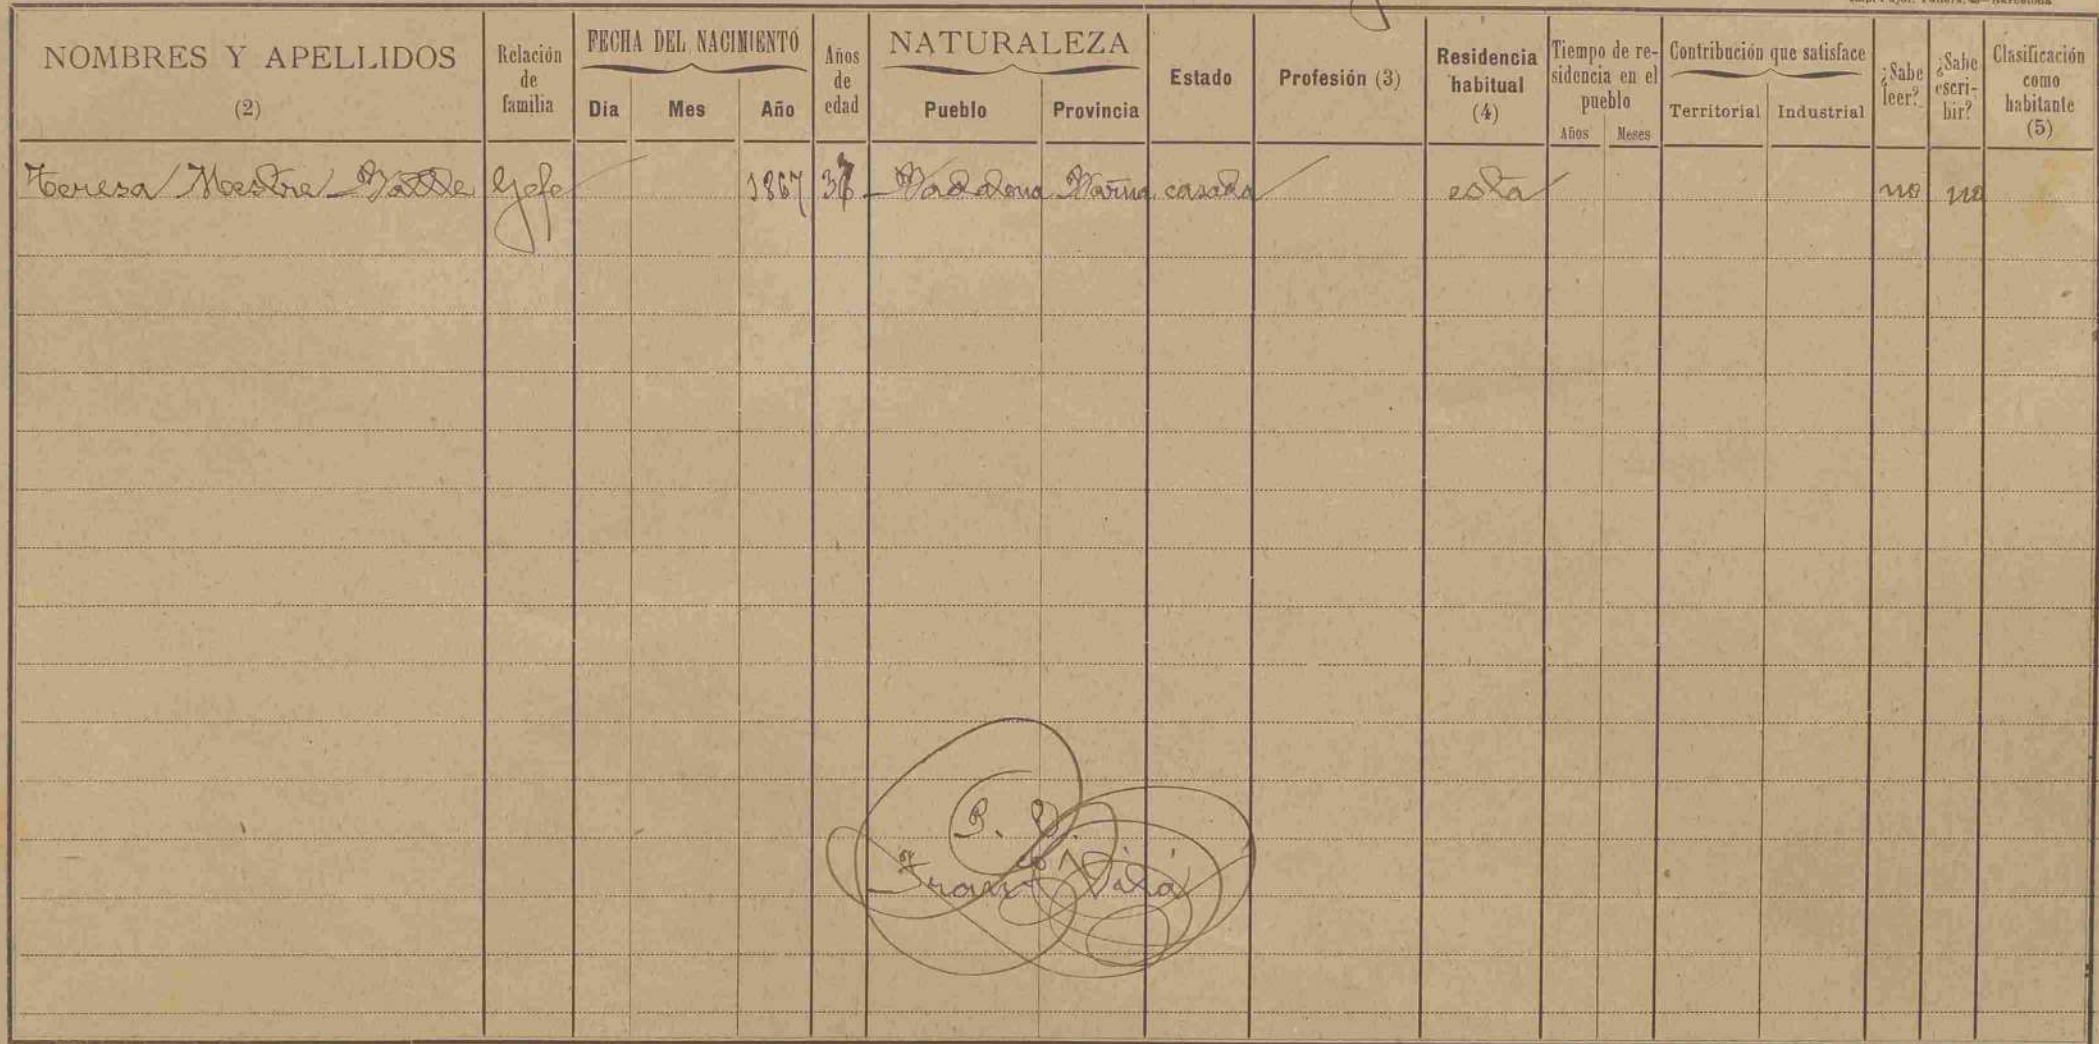 NOMBRES Y APELLIDOS
(2)
Relación
de
familia
FECHA DEL NACIMIENTO
Dia Mes Año
Años
de
edad
NATURALEZA
Pueblo Provincia
Estado
Profesión (3)
Residencia
habitual
(4)
Tiempo de re-
sidencia en el
pueblo
Años Meses
Contribución que satisface
Territorial Industrial
¿Sabe
leer?
¿Sabe
escri-
bir?
Clasificación
como
habitante
(5)
Teresa Mestre Gefe 1867 casada esta no no
Vilá